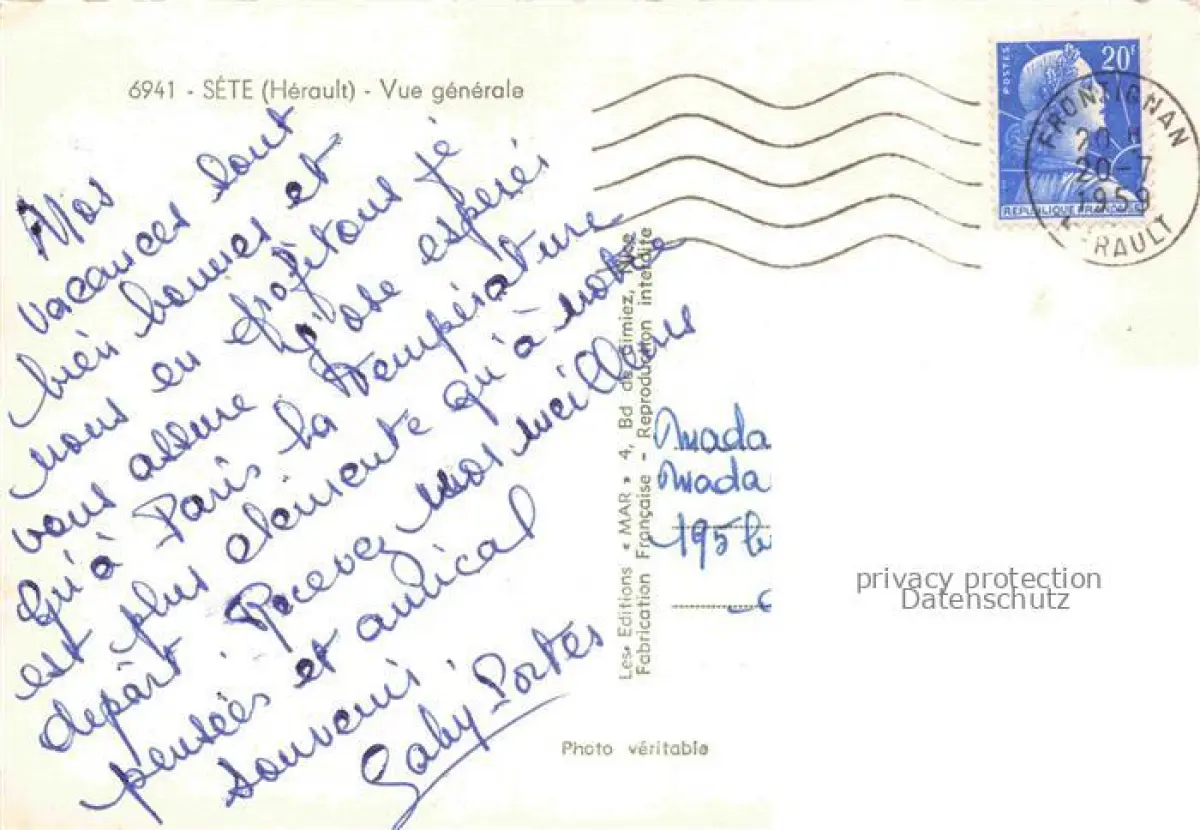 6941 - SÈTE (Hérault) - Vue générale
Nos
vacances sont
bien bonnes et
nous en profitons je
vous assure. J'ose espérer
qu'à Paris la température
est plus clémente qu'à notre
départ. Recevez nos meilleurs
pensées et amical
souvenir.
Gaby Portes
Les Editions « MAR » 4, Bd de Cimiez, Nice
Fabrication Française - Reproduction interdite
Photo véritable
POSTES
20F
REPUBLIQUE FRANÇAISE
FRONTIGNAN
20 H
20-7
1959
HERAULT
Mada
Mada
195
privacy protection
Datenschutz